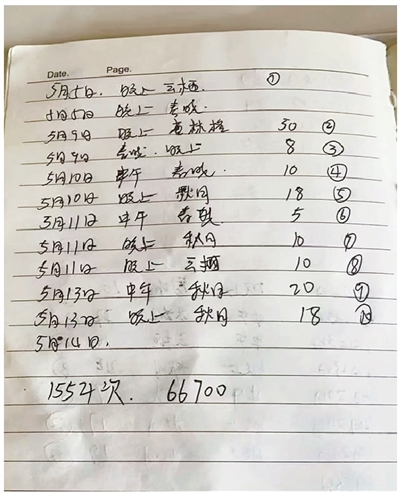 Date. Page.
5月5日. 晚上 云栖. ①
5月5日 晚上 春晓.
5月9日 晚上 30 ②
5月9日 春晓. 晚上 8 ③
5月10日 中午 春晓. 10 ④
5月10日 晚上 秋月 18 ⑤
5月11日 中午 春晓 5 ⑥
5月11日 晚上 秋月 10 ⑦
5月11日 晚上 云栖 10 ⑧
5月13日 中午 秋月 20 ⑨
5月13日 晚上 秋月 18 ⑩
5月14日.
155次. 66700